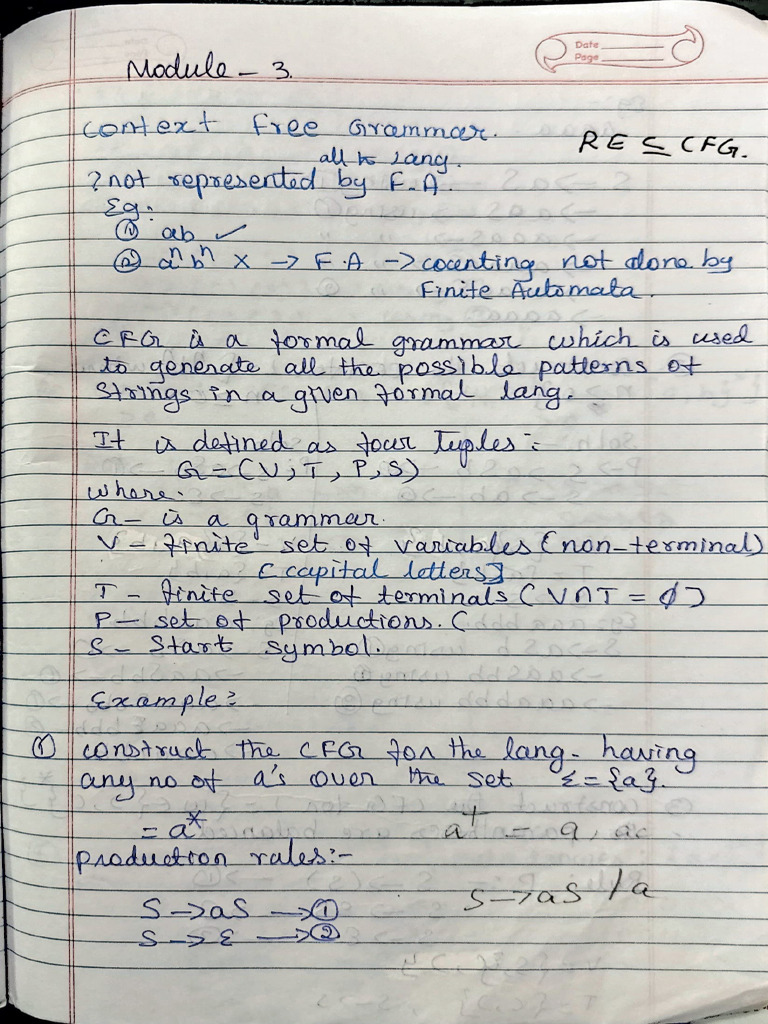 Date
Page
Module - 3.
Context Free Grammar.
RE ⊆ CFG.
all lang.
? not represented by F.A.
Eg:
① ab ✓
② aⁿbⁿ X → F.A → counting not done by
Finite Automata.
CFG is a formal grammar which is used
to generate all the possible patterns of
strings in a given formal lang.
It is defined as four Tuples :-
G = (V, T, P, S)
where.
G - is a grammar.
V - finite set of variables (non-terminal)
[capital letters]
T - finite set of terminals (V∩T = ∅)
P - set of productions. (
S - Start symbol.
Example:
① construct the CFG for the lang. having
any no of a's over the set Σ = {a}.
= a*
a⁺ = a, aa
production rules:-
S → aS / a
S → aS → ①
S → ε → ②